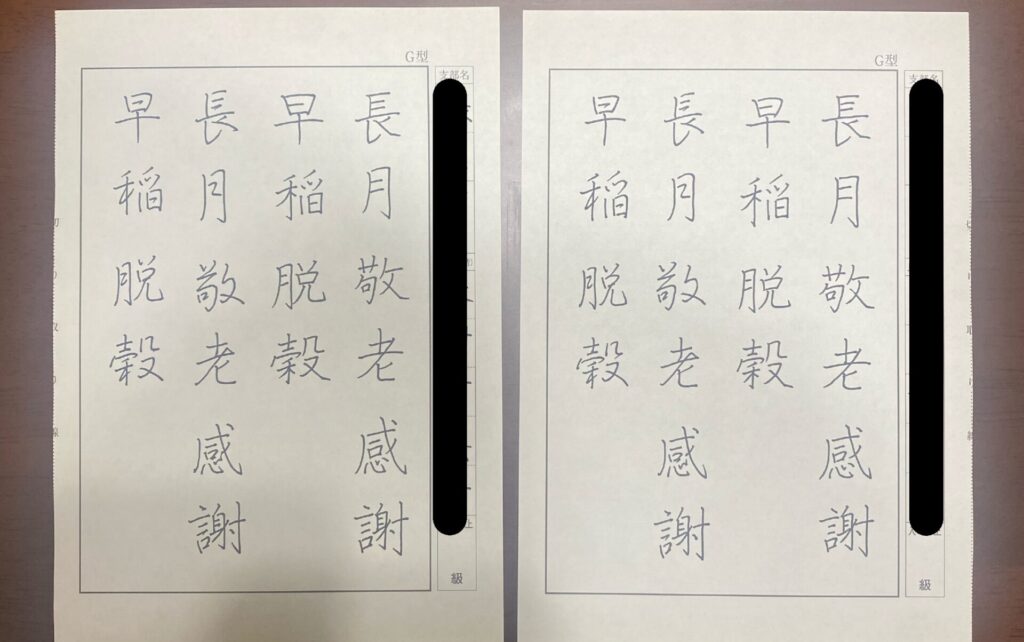 G型
支部名
長月敬老感謝
早稲脱穀
長月敬老感謝
早稲脱穀
級
G型
支部名
長月敬老感謝
早稲脱穀
長月敬老感謝
早稲脱穀
級
切り取り線